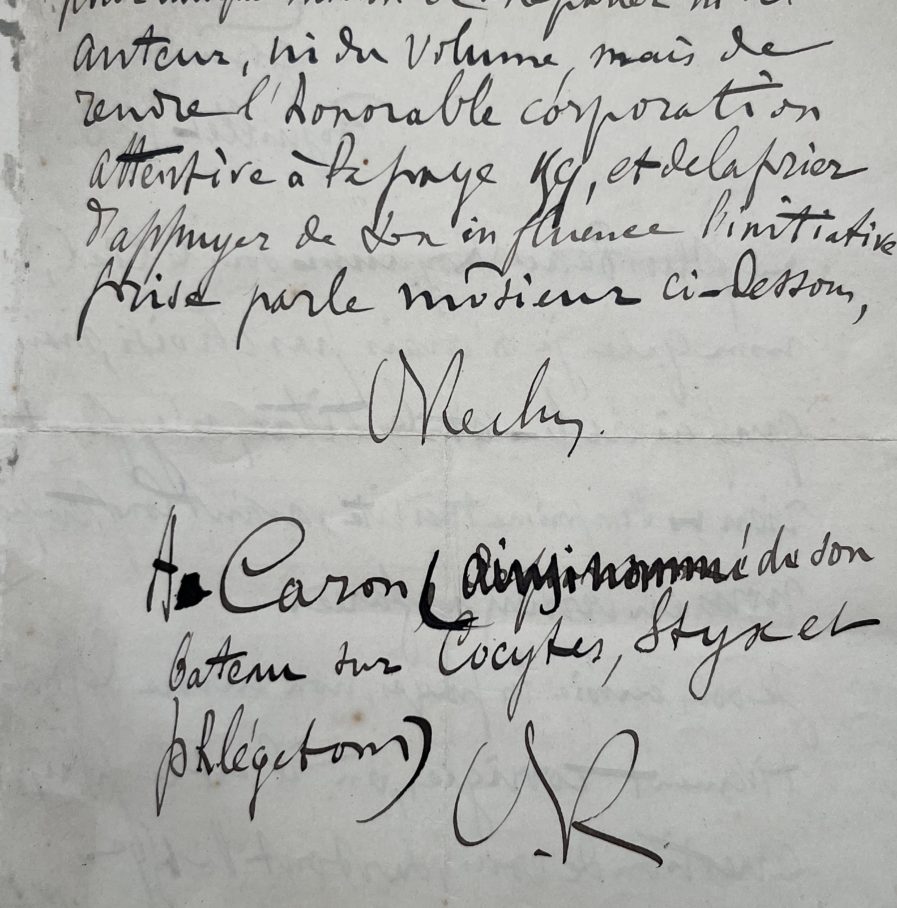 auteur, ni du volume, mais de
rendre l'honorable corporation
attentive à la page 59, et de la prier
d'appuyer de son influence l'initiative
prise par le môsieur ci-dessous,
A Caron (ainsi nommé de son
bateau sur Cocytes, Styx et
phlégétons)